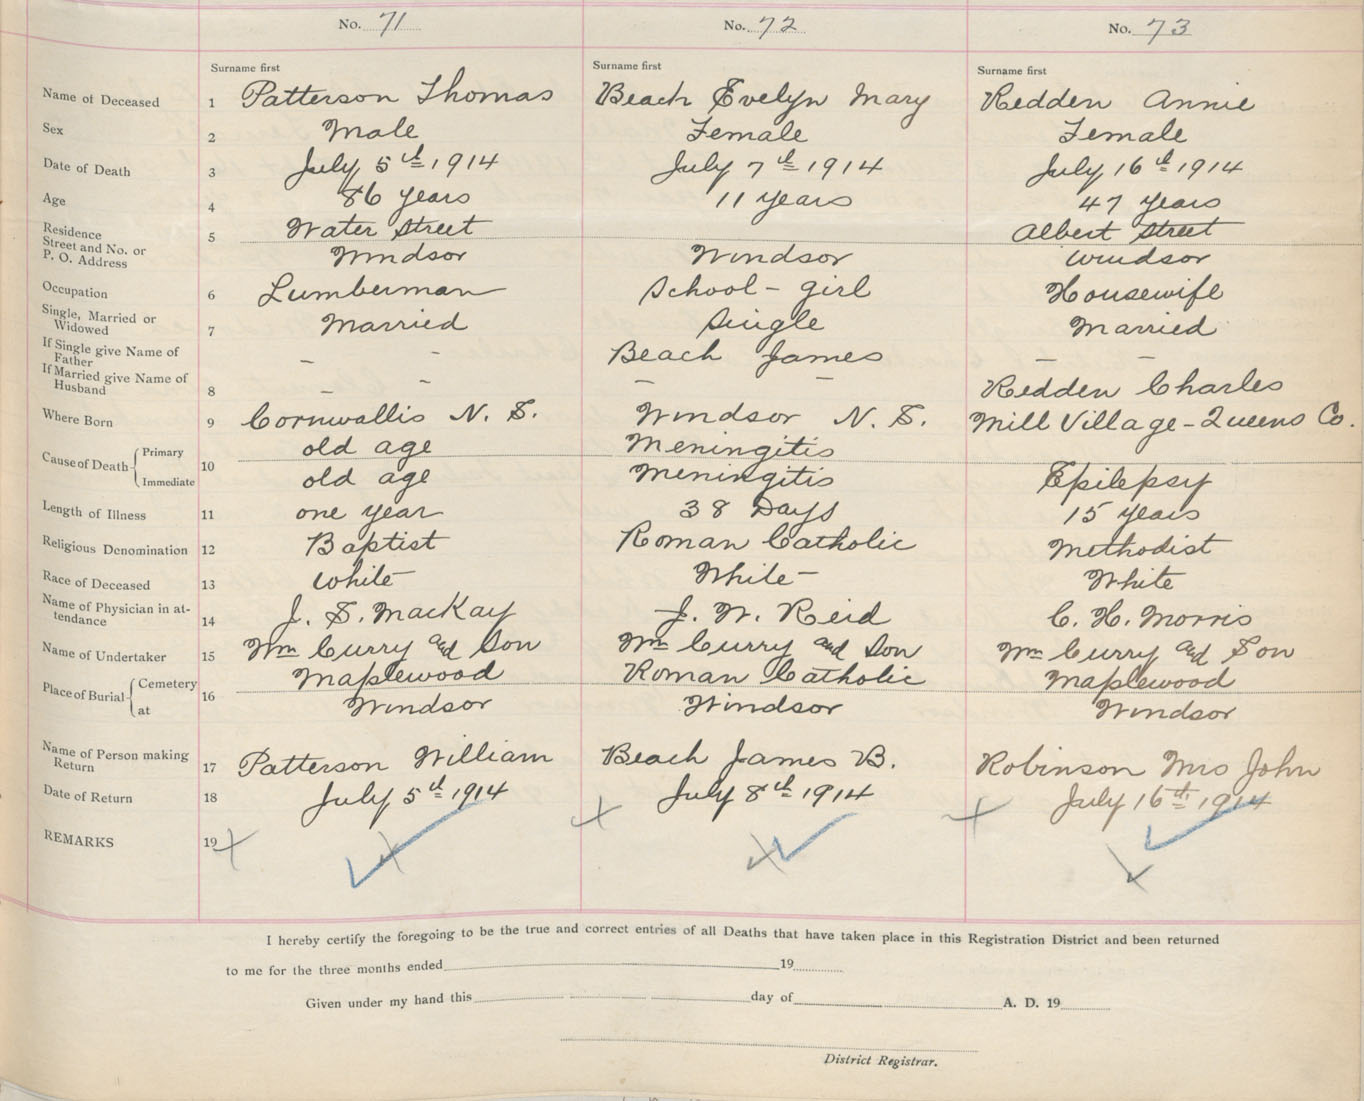 No. 71 No. 72 No. 73
Surname first Surname first Surname first
Name of Deceased 1 Patterson Thomas Beach Evelyn Mary Redden Annie
Sex 2 Male Female Female
Date of Death 3 July 5th 1914 July 7th 1914 July 16th 1914
Age 4 86 years 11 years 47 years
Residence Water Street Albert Street
Street and No. or 5
P. O. Address Windsor Windsor Windsor
Occupation 6 Lumberman School - girl Housewife
Single, Married or
Widowed 7 Married Single Married
If Single give Name of
Father - - Beach James - -
If Married give Name of
Husband 8 - - - - Redden Charles
Where Born 9 Cornwallis N. S. Windsor N. S. Mill Village - Queens Co.
Cause of Death Primary old age Meningitis
10
Immediate old age Meningitis Epilepsy
Length of Illness 11 one year 38 Days 15 years
Religious Denomination 12 Baptist Roman Catholic Methodist
Race of Deceased 13 White White - White
Name of Physician in at-
tendance 14 J. S. MacKay J. W. Reid C. H. Morris
Name of Undertaker 15 Wm Curry and Son Wm Curry and Son Wm Curry and Son
Place of Burial Cemetery Maplewood Roman Catholic Maplewood
16
at Windsor Windsor Windsor
Name of Person making
Return 17 Patterson William Beach James B. Robinson Mrs John
Date of Return 18 July 5th 1914 July 8th 1914 July 16th 1914
REMARKS 19
I hereby certify the foregoing to be the true and correct entries of all Deaths that have taken place in this Registration District and been returned
to me for the three months ended 19
Given under my hand this day of A. D. 19
District Registrar.